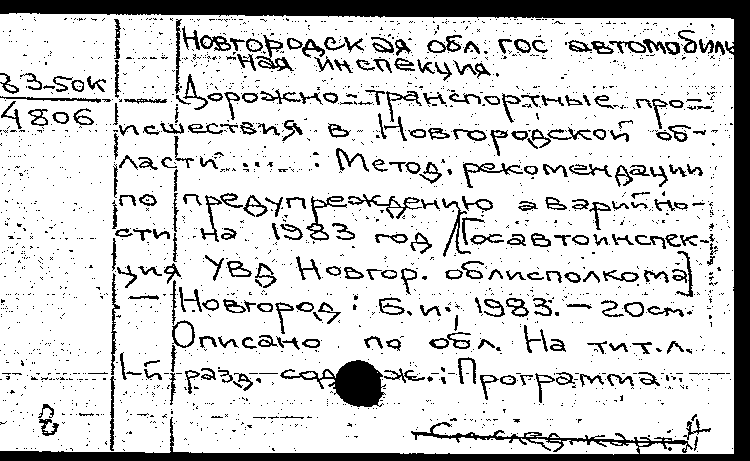 Новгородская обл. гос автомобиль
ная инспекция.
83-50К
4806
Дорожно-транспортные про-
исшествия в Новгородской об-
ласти ... : Метод. рекомендации
по предупреждению аварийно-
сти на 1983 год / [Госавтоинспек-
ция УВД Новгор. облисполкома]
— Новгород : Б. и., 1983. — 20 см.
Описано по обл. На тит. л.
1-й разд. содерж.: Программа...
8
См. след. карт.